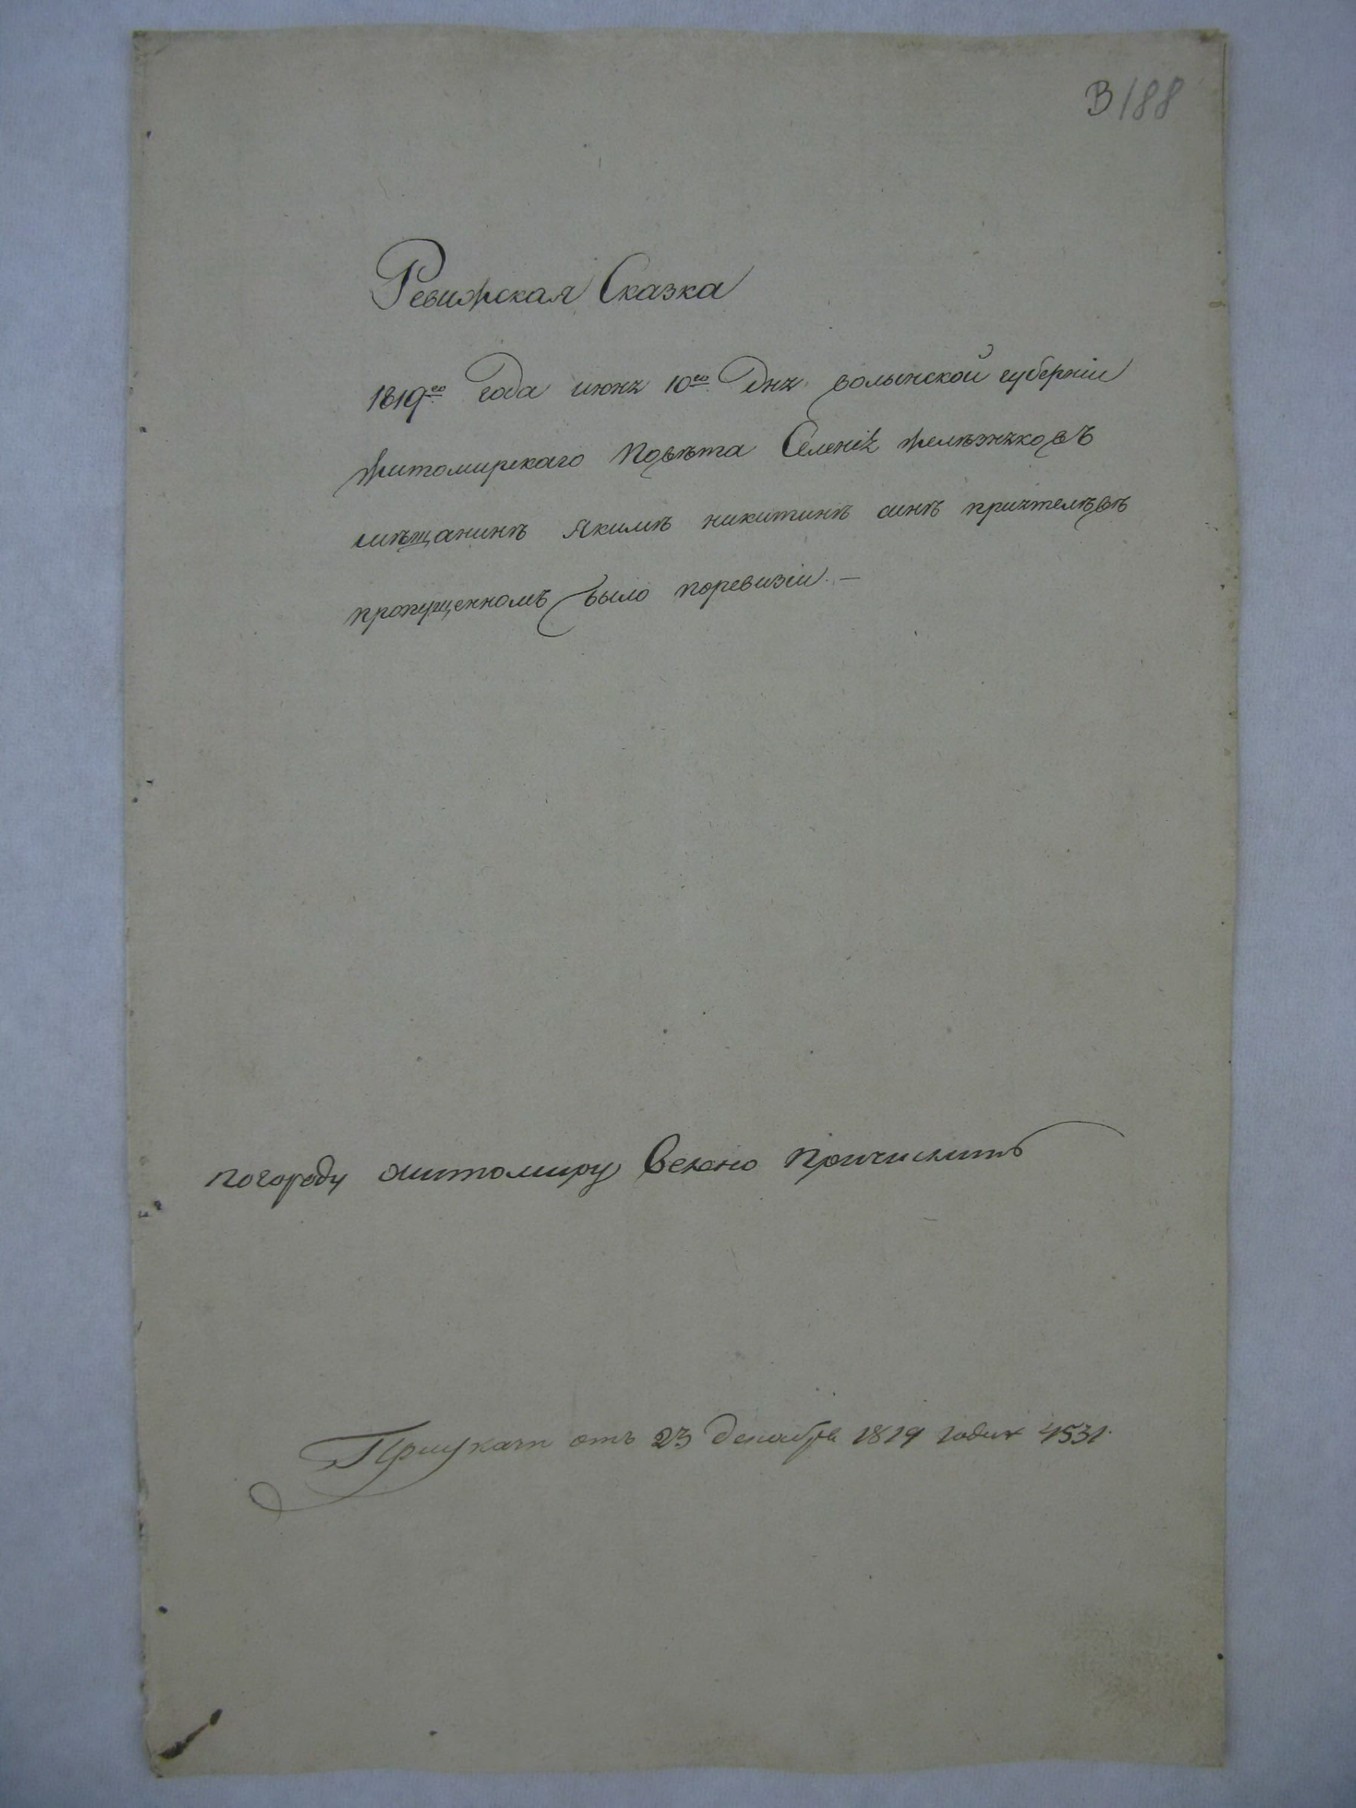 В 188
Ревижская Сказка
1819го года июня 10го Дня волынской губернiи
житомирскаго Повѣта Селенiя желѣзняковъ
мѣщанинъ Якимъ никитинъ синъ
пропущенномъ было поревизiи. —
погороду житомиру причислить
отъ 23 декабря 1819 года 4531.